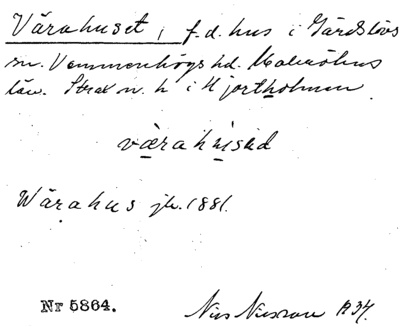 Vårahuset, f.d. hus i Gärdslövs
sn. Vemmenhögs hd. Malmöhus
län. Strax n. h i Hjortholmen
vårahused
Wårahus jb. 1881.
Nr 5864. Nils Nilsson 1934.